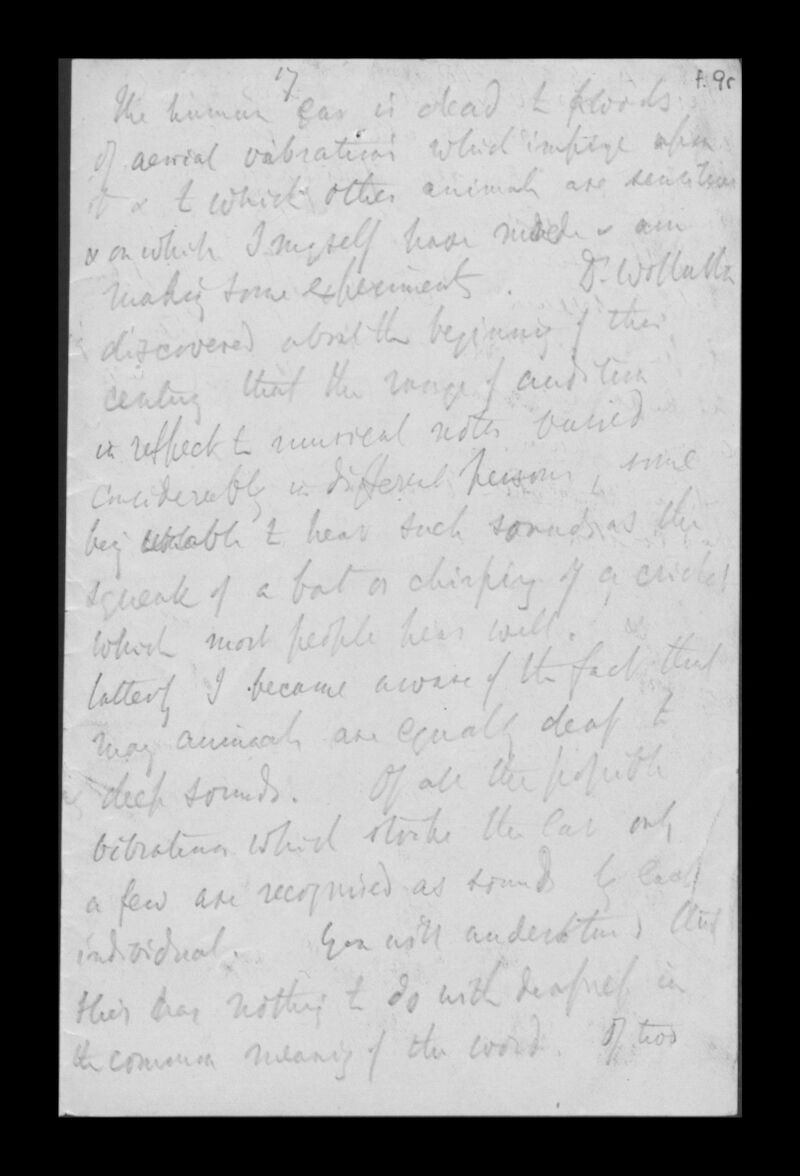 17
f. 9r
The human ear is dead to floods
of aerial vibrations which impinge upon
it & to which other animals are sensitive
& on which I myself have made & am
making some experiments. Dr. Wollaston
discovered about the beginning of this
century that the range of audition
in respect to musical notes varied
considerably in different persons, some
being unable to hear such sounds as the
squeak of a bat or chirping of a cricket
which most people hear well.
latterly I became aware of the fact that
many animals are equally deaf to
deep sounds. Of all the possible
vibrations which strike the ear only
a few are recognised as sounds by each
individual. You will understand that
this has nothing to do with deafness in
the common meaning of the word. Of two